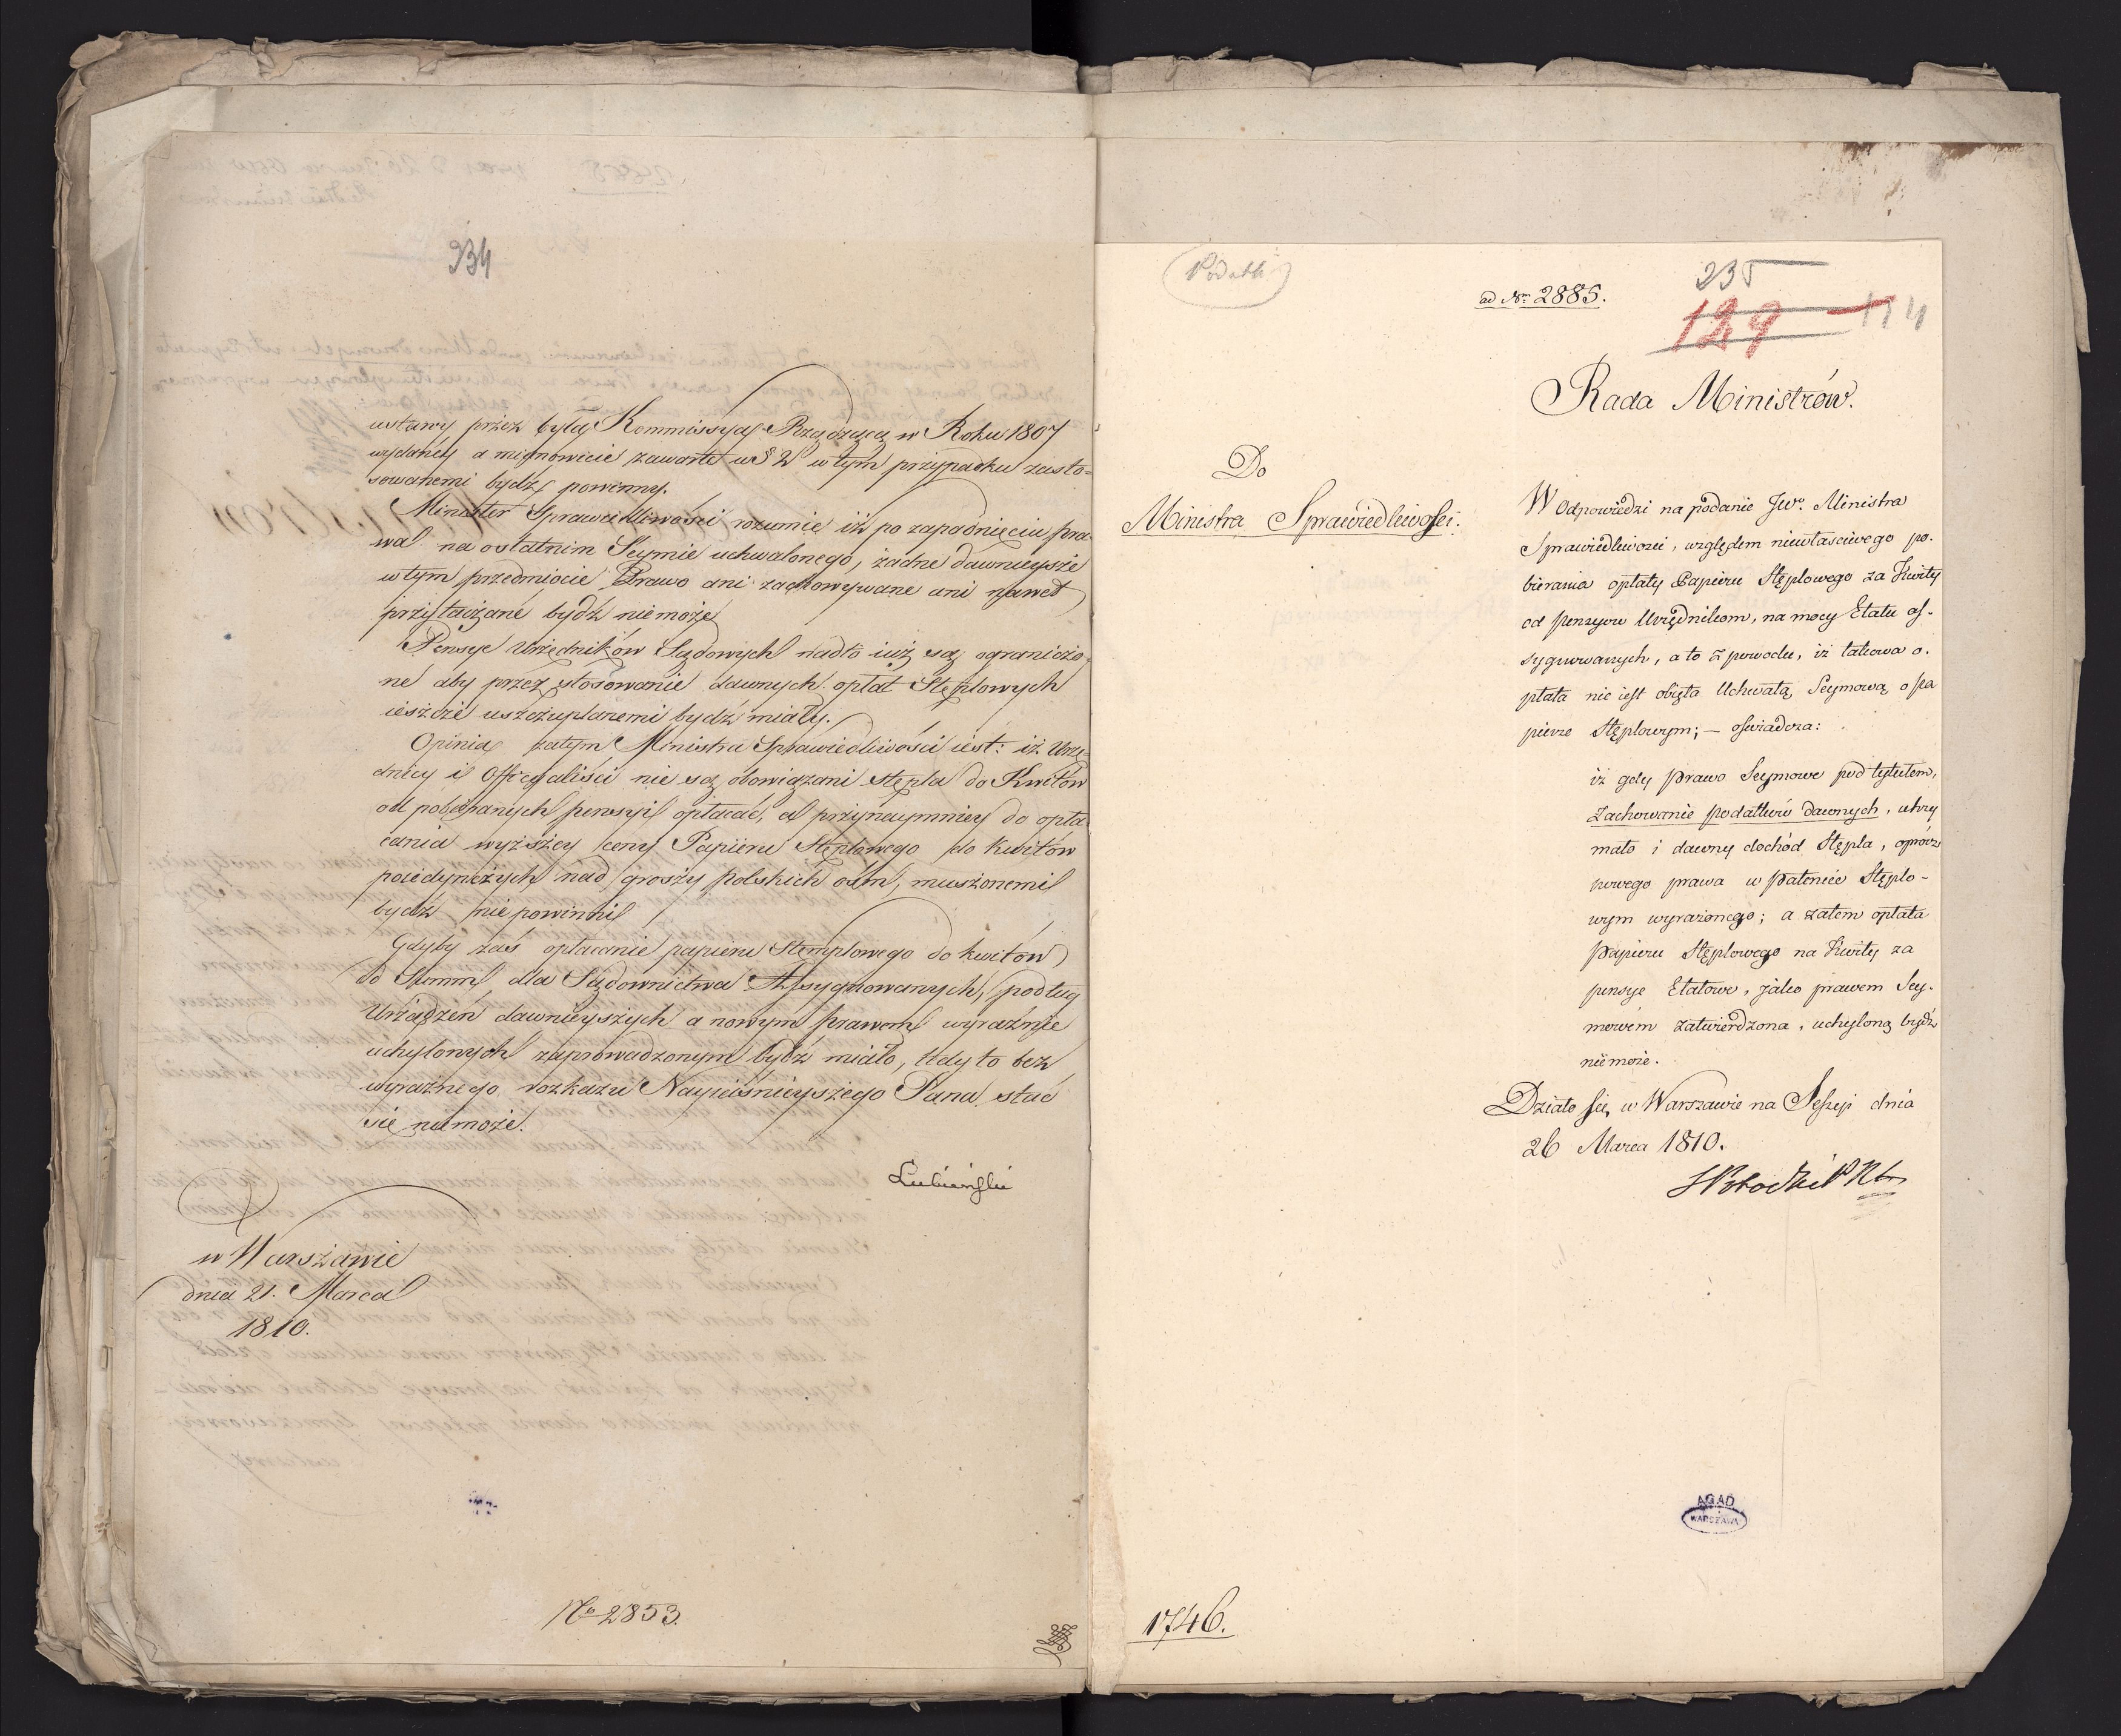 934
ustawy przez byłą Kommissyą Rządzącą w Roku 1807
wydanéy a mianowicie zawarte w § 2 w tym przypadku zasto=
sowanemi bydź powinny.
Minister Sprawiedliwości rozumie iż po zapadnięciu pra-
wa na ostatnim Seymie uchwalonego, żadne dawnieysze
w tym przedmiocie Prawo ani zachowywane ani nawet
przytaczane bydź nie może
Pensye Urzędników Sądowych nadto iuż są ograniczo-
ne aby przez stosowanie dawnych opłat Stęplowych
ieszcze uszczuplonemi bydź miały.
Opinia zatym Ministra Sprawiedliwości iest: iż Urzę-
dnicy i Officyaliści nie są obowiązani stępla do Kwitów
od pobieranych pensyi opłacać, a przynaymniey do opła-
cania wyższey ceny Papieru Stęplowego do kwitów
poiedynczych nad groszy polskich ośm, muszonemi
bydź nie powinni
Gdyby zaś opłacanie papieru Stemplowego do kwitów
do Summ, dla Sądownictwa Assygnowanych, podług
Urządzeń dawnieyszych a nowym prawem wyraźnie
uchylonych zaprowadzonym bydź miało, tedy to bez
wyraźnego rozkazu Nayiaśnieyszego Pana stać
się nie może.
Łubieński
w Warszawie
dnia 21. Marca
1810.
No 2853.
Podatki
ad Nrm 2885.
235
129
114
Rada Ministrów.
Do
Ministra Sprawiedliwości.
W Odpowiedzi na podanie JWo. Ministra
Sprawiedliwości, względem niewłaściwego po-
bierania opłaty Papieru Stęplowego za Kwity
od pensyow Urzędnikom, na mocy Etatu as-
sygnowanych, a to z powodu, iż takowa o-
płata nie iest obięta Uchwałą Seymową o pa
pierze Stęplowym; – oświadcza:
iż gdy prawo Seymowe pod tytułem,
Zachowanie podatków dawnych, utrzy
mało i dawny dochód Stępla, oprócz
nowego prawa w Patencie Stęplo-
wym wyrażonego; a zatem opłata
Papieru Stęplowego na Kwity za
pensye Etatowe, jako prawem Sey-
mowém zatwierdzona, uchyloną bydź
nie może.
Działo się w Warszawie na Sessyi dnia
26 Marca 1810.
S Potocki P R M
AGAD
WARSZAWA
1746.